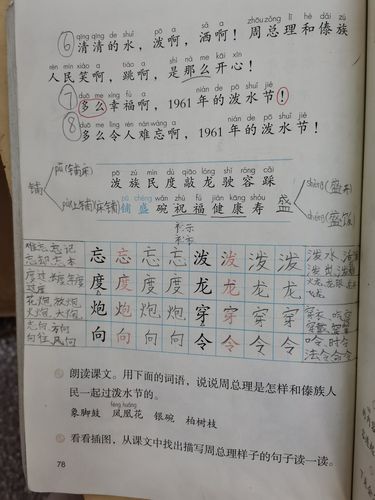 qīng qīng de shuǐ pō a sǎ a zhōu zǒng lǐ hé dǎi zú
⑥ 清清的水，泼啊，洒啊！周总理和傣族
rén mín xiào a tiào a shì nà me kāi xīn
人民笑啊，跳啊，是那么开心！
duō me xìng fú a nián de pō shuǐ jié
⑦ 多么幸福啊，1961年的泼水节！
duō me lìng rén nán wàng a nián de pō shuǐ jié
⑧ 多么令人难忘啊，1961年的泼水节！
pō zú mín dù qiāo lóng shǐ róng cǎi
泼族民度敲龙驶容踩
pū chéng wǎn zhù fú jiàn kāng shòu
铺盛碗祝福健康寿
铺
盛
shèng
chéng(盛饭)
忘忘忘忘泼泼泼泼
度度度度龙龙龙龙
炮炮炮炮穿穿穿穿
向向向向令令令令
难忘 忘记
泼水
火炮 大炮
方向
朗读课文。用下面的词语，说说周总理是怎样和傣族人
民一起过泼水节的。
fèng huáng
象脚鼓 凤凰花 银碗 柏树枝
看看插图，从课文中找出描写周总理样子的句子读一读。
78